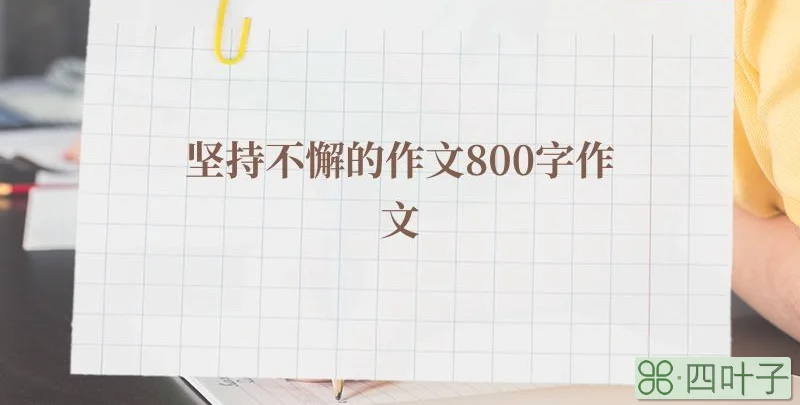 坚持不懈的作文800字作
文
四叶子